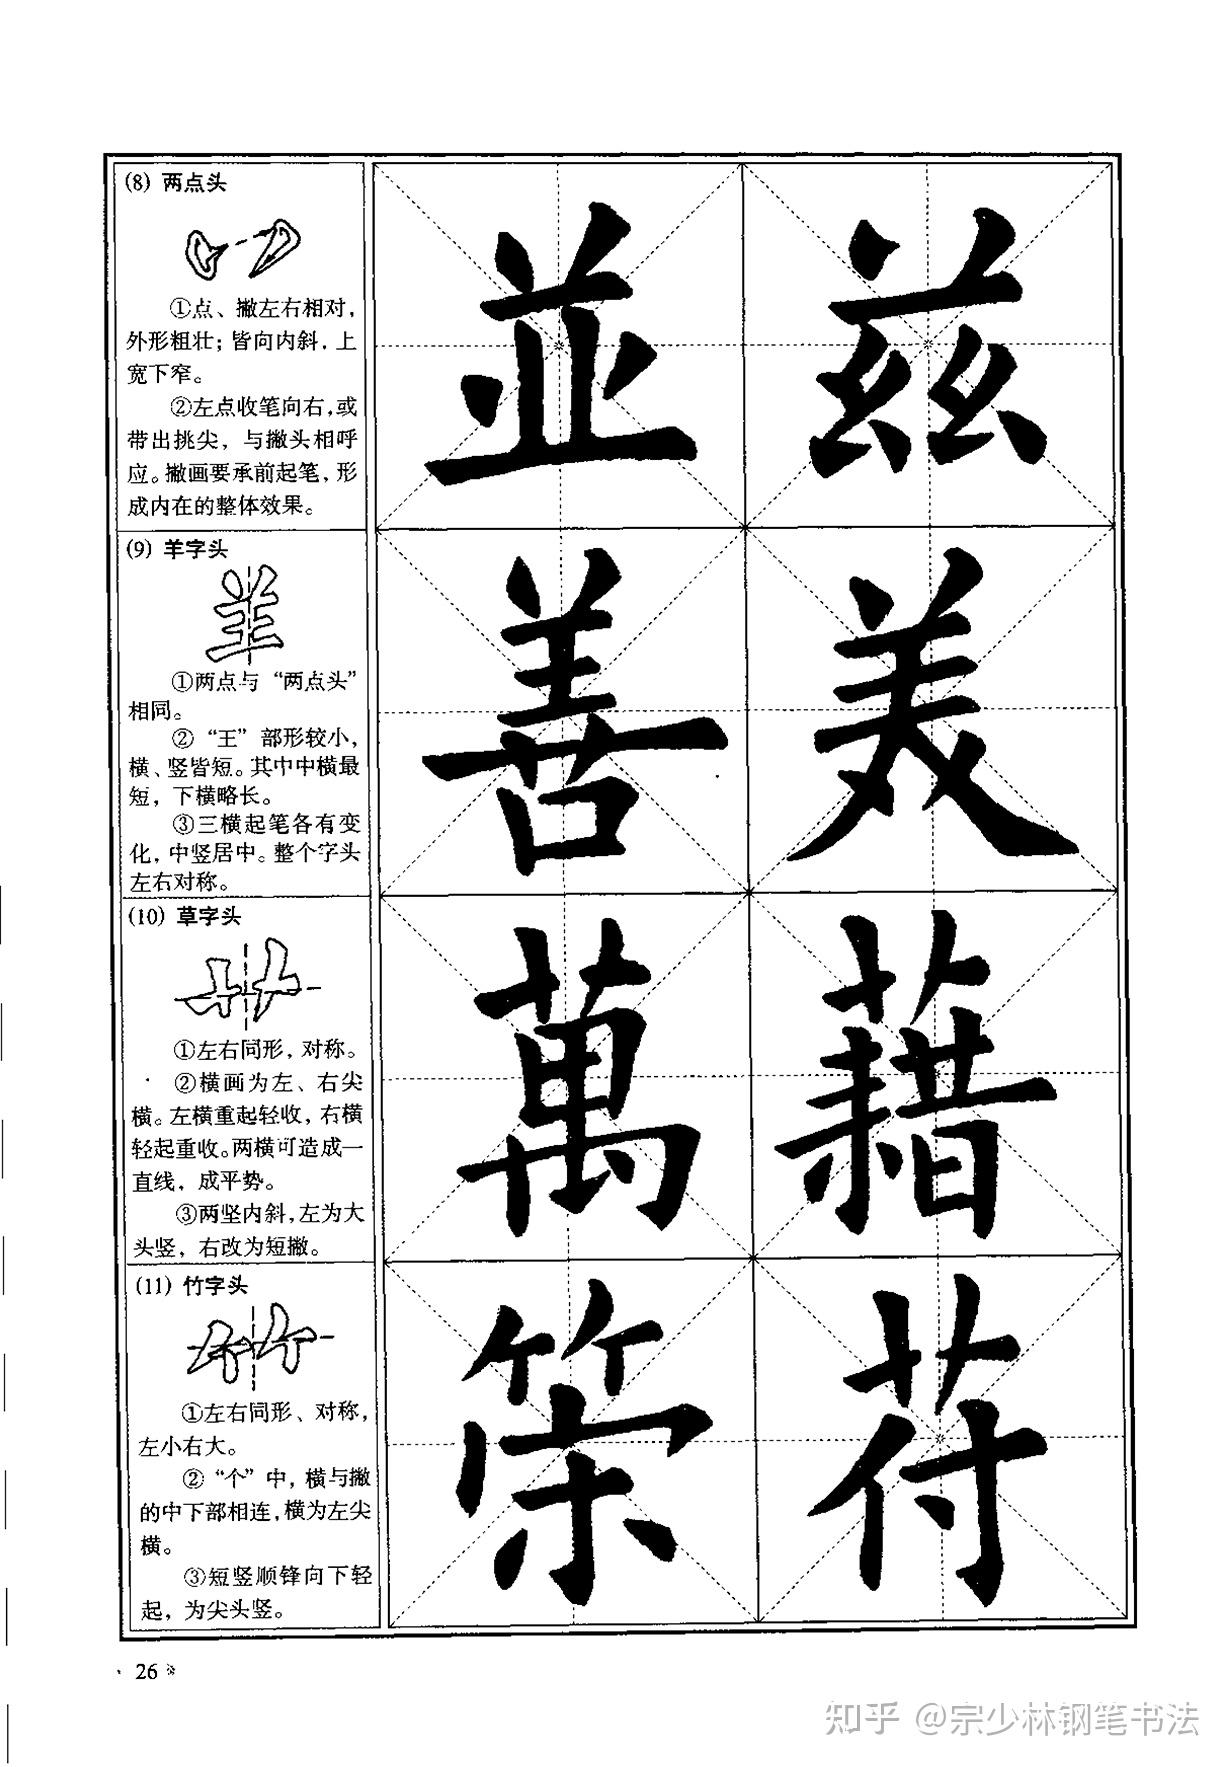 (8) 两点头
①点、撇左右相对，
外形粗壮；皆向内斜，上
宽下窄。
②左点收笔向右，或
带出挑尖，与撇头相呼
应。撇画要承前起笔，形
成内在的整体效果。
並 兹
(9) 羊字头
①两点与“两点头”
相同。
②“王”部形较小，
横、竖皆短。其中中横最
短，下横略长。
③三横起笔各有变
化，中竖居中。整个字头
左右对称。
善 美
(10) 草字头
①左右同形，对称。
②横画为左、右尖
横。左横重起轻收，右横
轻起重收。两横可造成一
直线，成平势。
③两竖内斜，左为大
头竖，右改为短撇。
萬 藉
(11) 竹字头
①左右同形、对称，
左小右大。
②“个”中，横与撇
的中下部相连，横为左尖
横。
③短竖顺锋向下轻
起，为尖头竖。
符
26
知乎 @宗少林钢笔书法